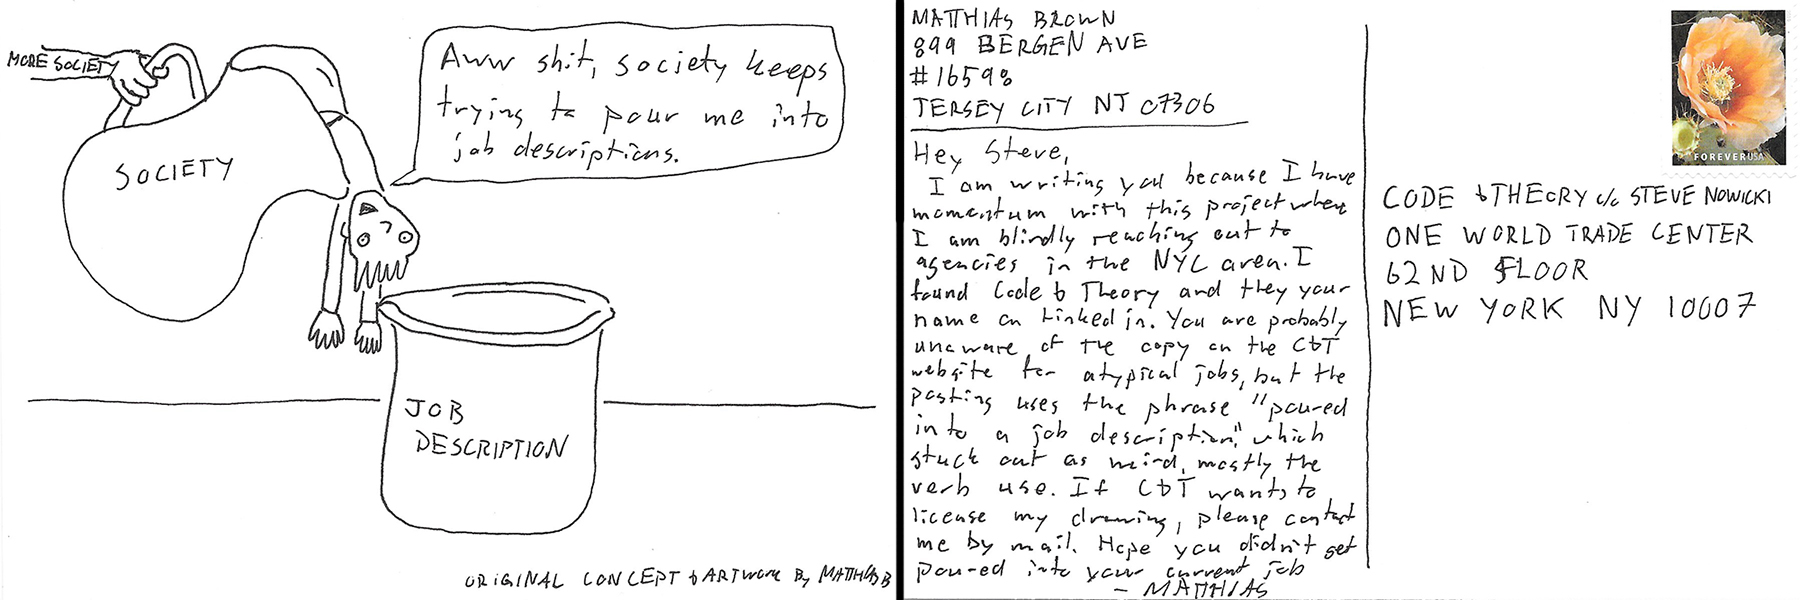 MORE SOCIETY
SOCIETY
Aww shit, society keeps
trying to pour me into
job descriptions.
JOB
DESCRIPTION
ORIGINAL CONCEPT & ARTWORK BY MATTHIAS B
MATTHIAS BROWN
899 BERGEN AVE
#16598
JERSEY CITY NJ 07306
Hey Steve,
I am writing you because I have
momentum with this project where
I am blindly reaching out to
agencies in the NYC area. I
found Code & Theory and they your
name on Linked in. You are probably
unaware of the copy on the C&T
website for atypical jobs, but the
posting uses the phrase "poured
into a job description," which
stuck out as weird, mostly the
verb use. If C&T wants to
license my drawing, please contact
me by mail. Hope you didn't get
poured into your current job
- MATTHIAS
FOREVER USA
CODE & THEORY c/o STEVE NOWICKI
ONE WORLD TRADE CENTER
62ND FLOOR
NEW YORK NY 10007